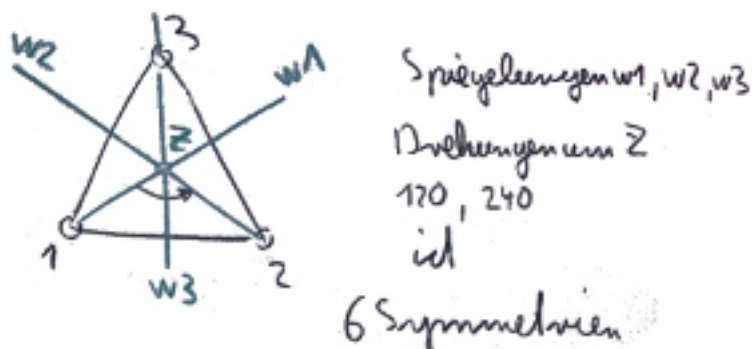 3
w2
w1
Z
1
2
w3
Spiegelungen w1, w2, w3
Drehungen um Z
120, 240
id
6 Symmetrien